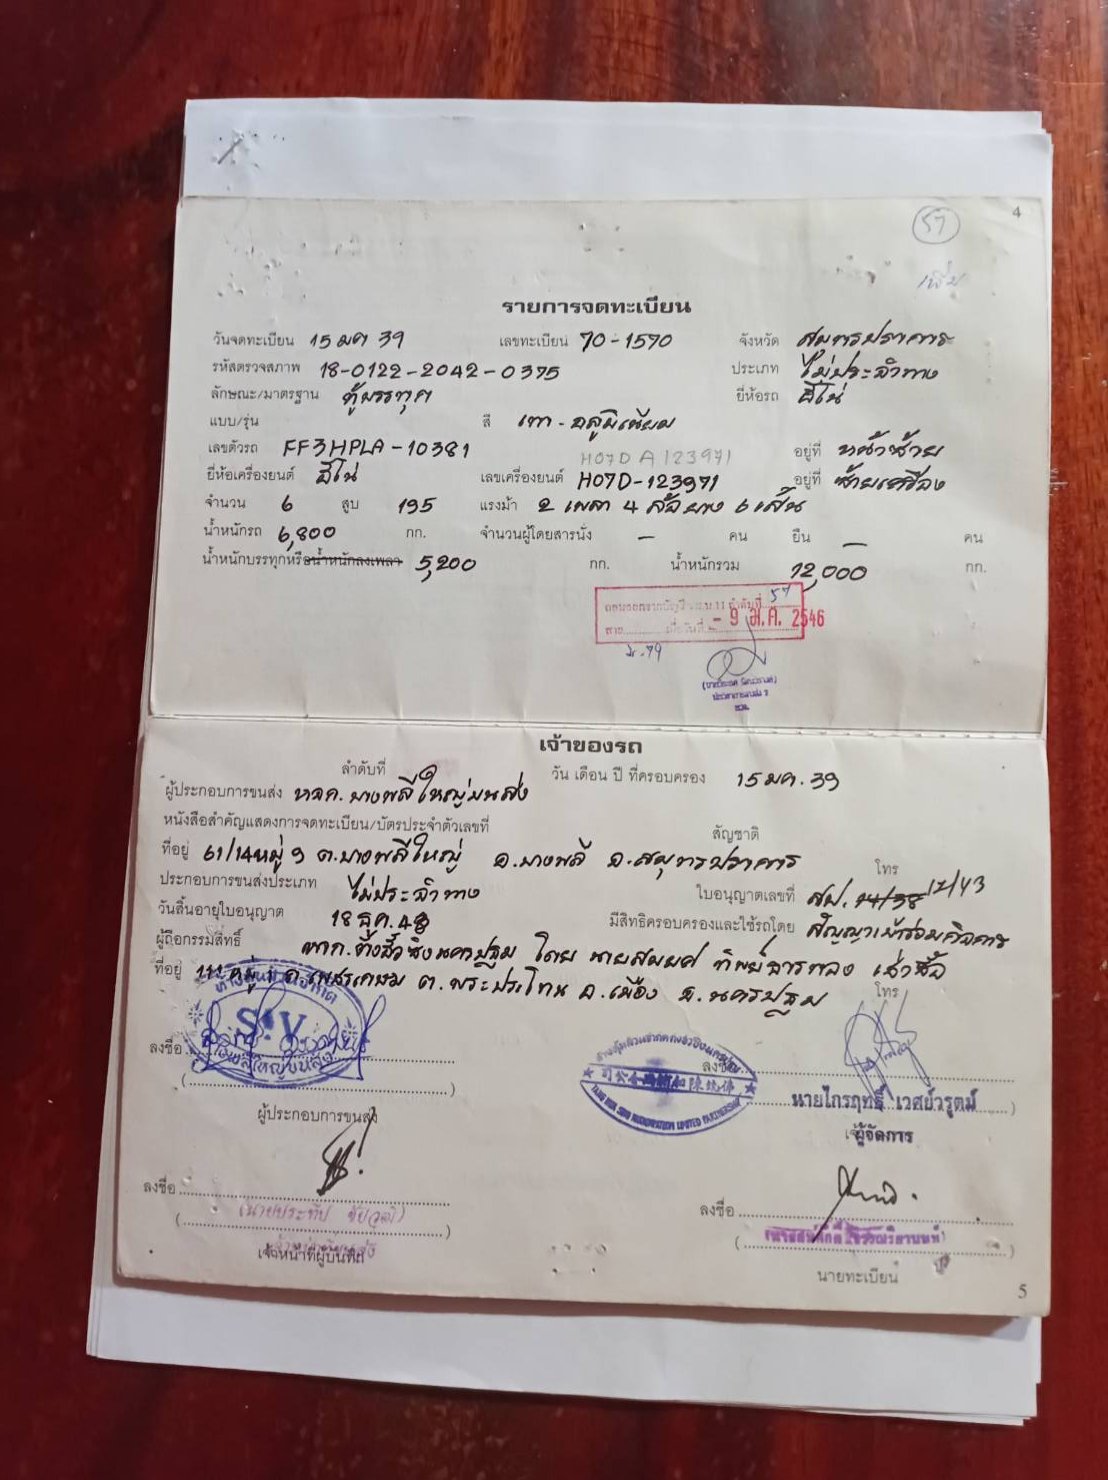 57
4
เพิ่ม
รายการจดทะเบียน
วันจดทะเบียน 15 มค 39 เลขทะเบียน 70-1570 จังหวัด สมุทรปราการ
รหัสตรวจสภาพ 18-0122-2042-0375 ประเภท ไม่ประจำทาง
ลักษณะ/มาตรฐาน ตู้บรรทุก ยี่ห้อรถ ฮีโน่
แบบ/รุ่น สี เทา-อลูมิเนียม
เลขตัวรถ FF3HPLA-10381 H07D A123971 อยู่ที่ หน้าซ้าย
ยี่ห้อเครื่องยนต์ ฮีโน่ เลขเครื่องยนต์ H07D-123971 อยู่ที่ ซ้ายเครื่อง
จำนวน 6 สูบ 195 แรงม้า 2 เพลา 4 ล้อ ยาง 6 เส้น
น้ำหนักรถ 6,800 กก. จำนวนผู้โดยสารนั่ง – คน ยืน – คน
น้ำหนักบรรทุกหรือน้ำหนักลงเพลา 5,200 กก. น้ำหนักรวม 12,000 กก.
57
- 9 มี.ค. 2546
เจ้าของรถ
ลำดับที่ วัน เดือน ปี ที่ครอบครอง 15 มค. 39
ผู้ประกอบการขนส่ง หจก. บางพลีใหญ่ขนส่ง
หนังสือสำคัญแสดงการจดทะเบียน/บัตรประจำตัวเลขที่ สัญชาติ
ที่อยู่ 61/14 หมู่ 9 ต.บางพลีใหญ่ อ.บางพลี จ.สมุทรปราการ โทร
ประกอบการขนส่งประเภท ไม่ประจำทาง ใบอนุญาตเลขที่ สป. 14/38 12/43
วันสิ้นอายุใบอนุญาต 18 ธค. 48 มีสิทธิครอบครองและใช้รถโดย สัญญาเข้าร่วมกิจการ
ผู้ถือกรรมสิทธิ์ หจก.ตั้งฮั้วซิงนครปฐม โดย นายสมยศ ทิพย์จารทอง เช่าซื้อ
ที่อยู่ 111 หมู่ 1 ถ.เพชรเกษม ต.พระประโทน อ.เมือง จ.นครปฐม โทร
S.V
ลงชื่อ
ลงชื่อ
นายไกรฤทธิ์ เวศย์วรุตม์
ผู้ประกอบการขนส่ง
ผู้จัดการ
ลงชื่อ
ลงชื่อ
เจ้าหน้าที่ผู้บันทึก
นายทะเบียน
5